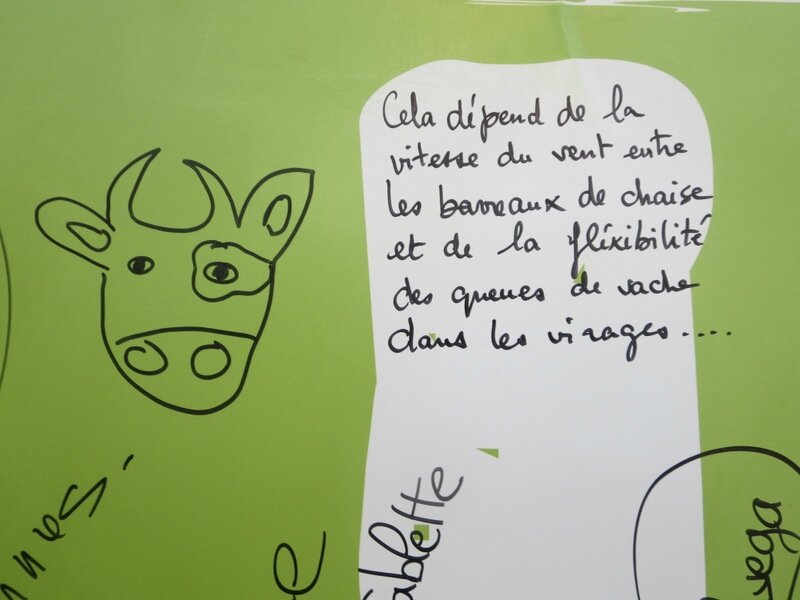 Cela dépend de la
vitesse du vent entre
les barreaux de chaise
et de la fléxibilité
des queues de vache
dans les virages....
ablette
vega